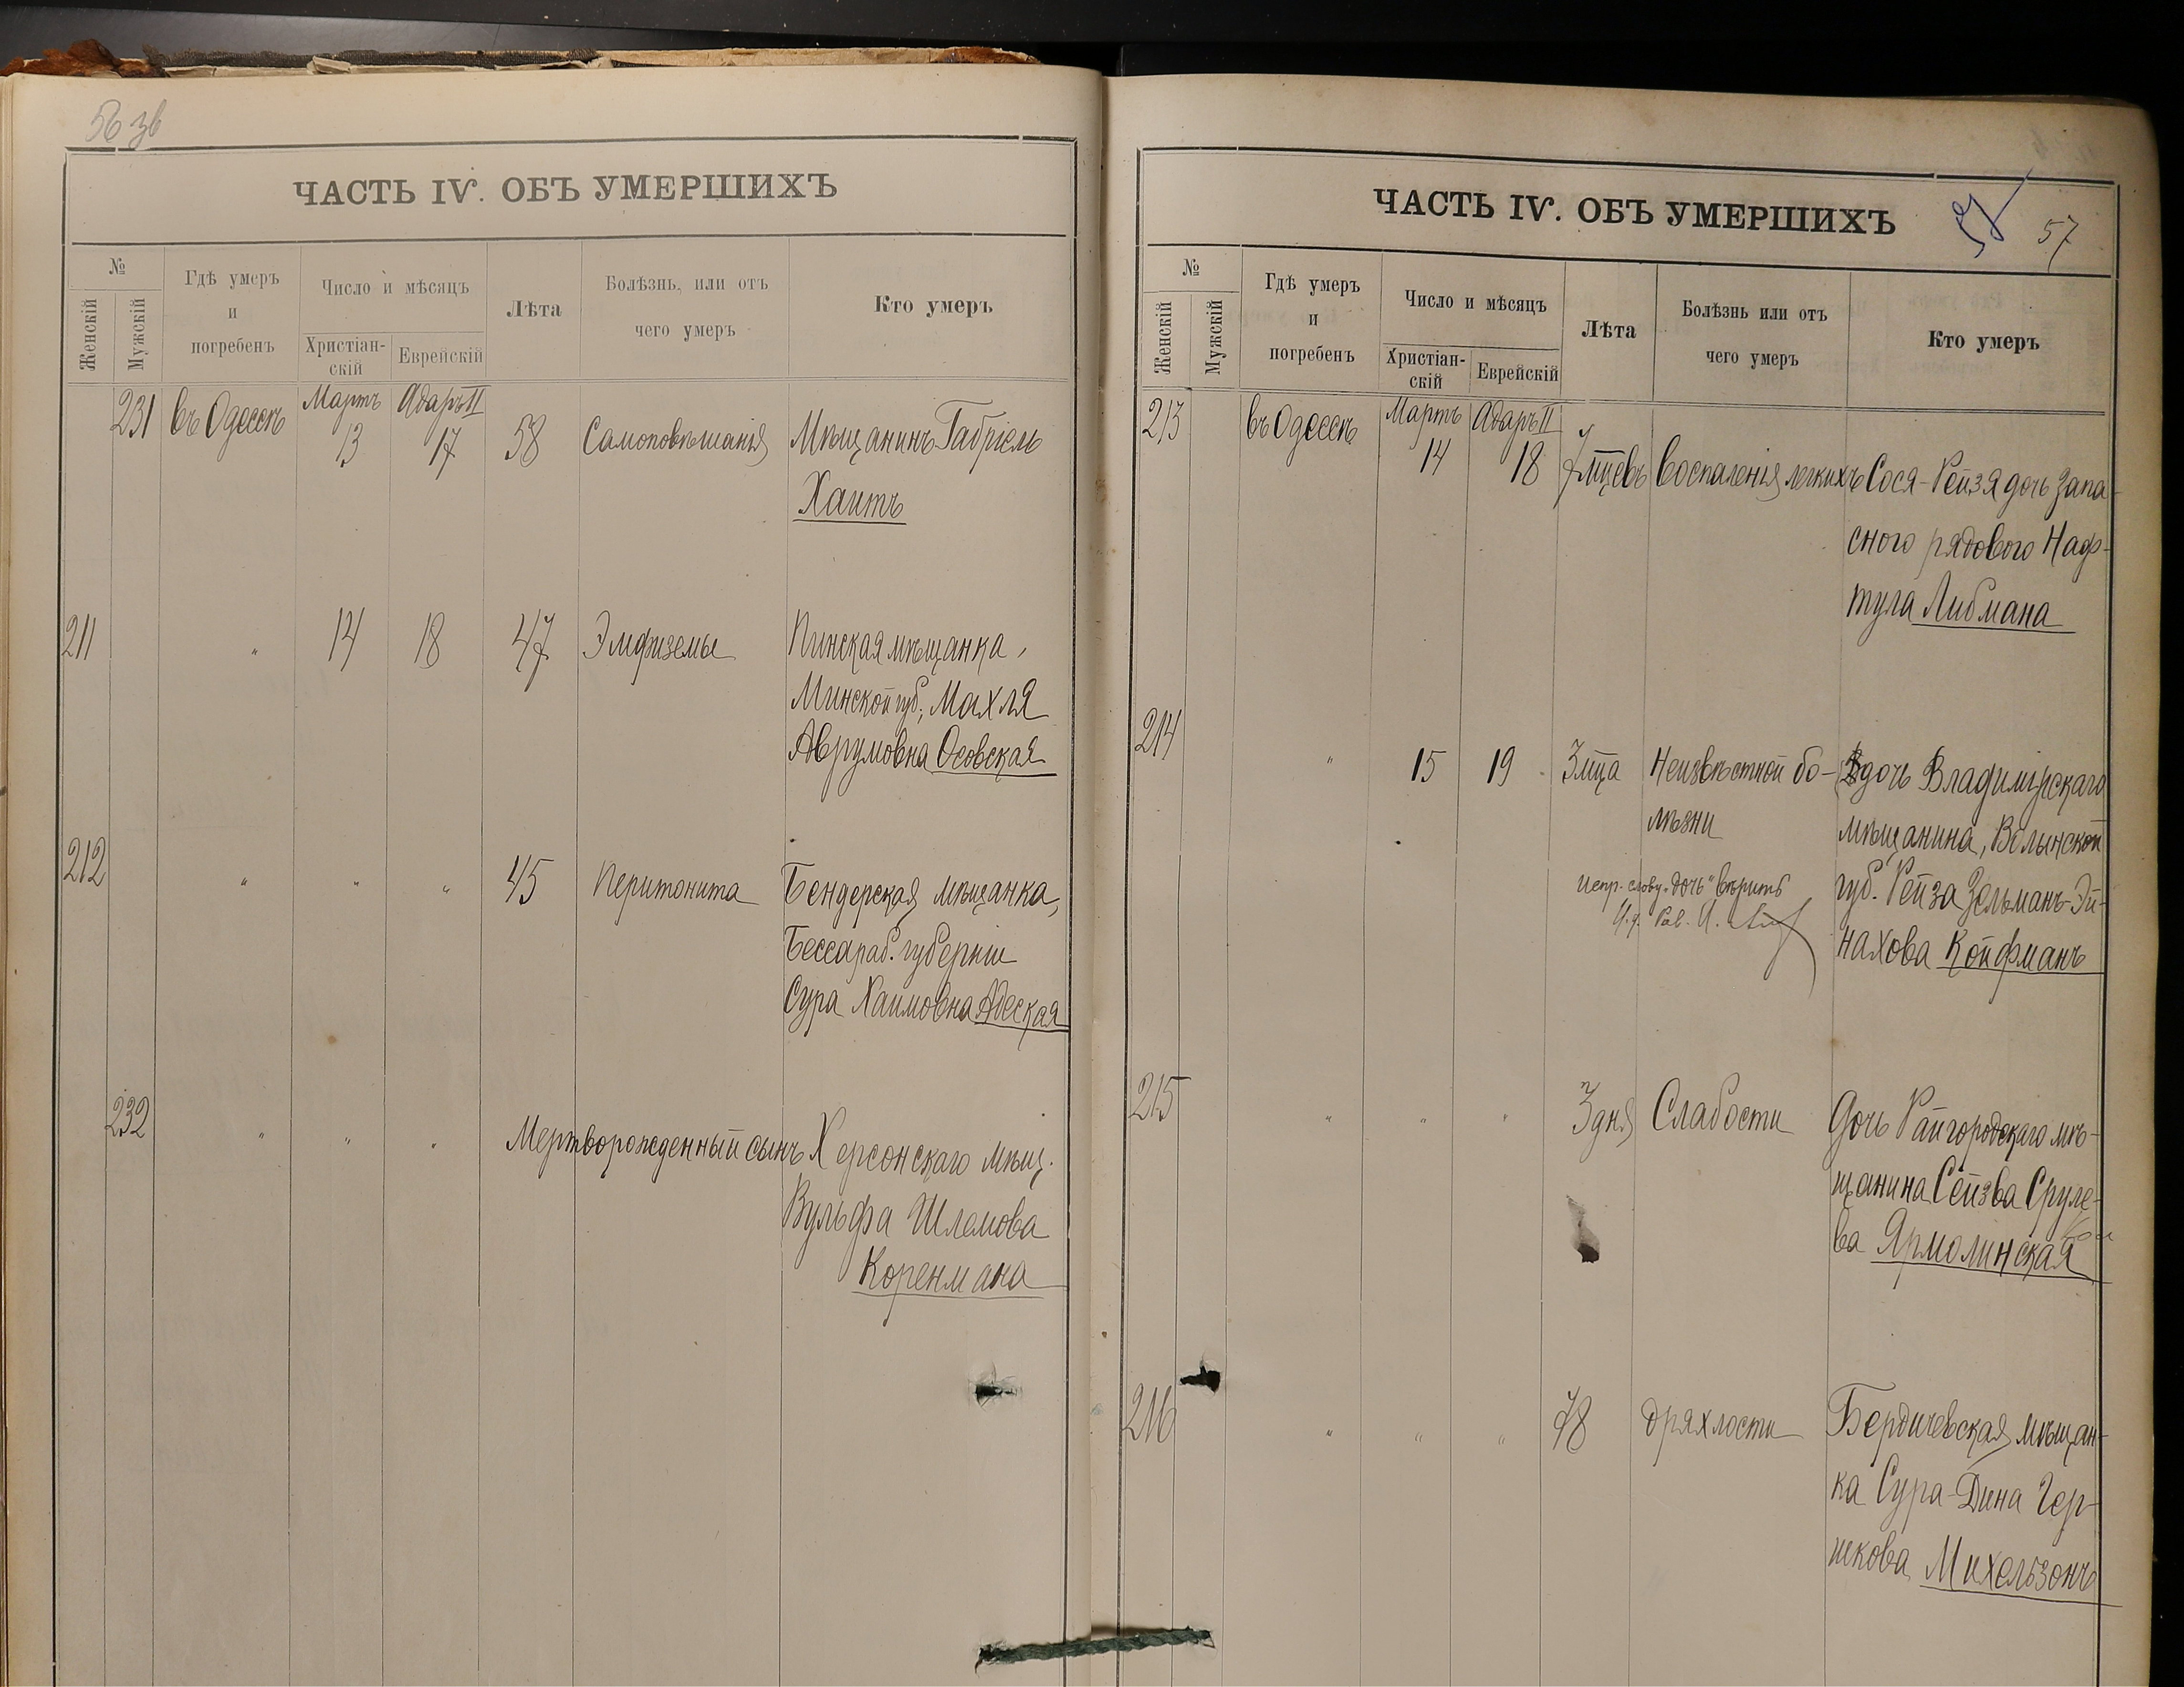 56 зв
ЧАСТЬ IV. ОБЪ УМЕРШИХЪ
№
Женскій
Мужскій
Гдѣ умеръ
и
погребенъ
Число и мѣсяцъ
Христіан-
скій
Еврейскій
Лѣта
Болѣзнь, или отъ
чего умеръ
Кто умеръ
231 въ Одессѣ Мартъ 13 Адаръ II 17 58 Самоповѣшанія Мѣщанинъ Габріель
Хаитъ
211 " 14 18 47 Эмфиземы Пинская мѣщанка,
Минской губ., Махля
Аврумовна Осовская
212 " " " 45 Перитонита Бендерская мѣщанка,
Бессараб. губерніи
Сура Хаимовна Адеская
232 " " " Мертворожденный сынъ Херсонскаго мѣщ.
Вульфа Шлемова
Коренмана
ЧАСТЬ IV. ОБЪ УМЕРШИХЪ
57
57
№
Женскій
Мужскій
Гдѣ умеръ
и
погребенъ
Число и мѣсяцъ
Христіан-
скій
Еврейскій
Лѣта
Болѣзнь или отъ
чего умеръ
Кто умеръ
213 въ Одессѣ Мартъ 14 Адаръ II 18 7 мцевъ Воспаленія легкихъ Сося-Рейзя дочь запа-
сного рядового Наф-
тула Либмана
214 " 15 19 3 мца Неизвѣстной бо- дочь Владимірскаго
лѣзни мѣщанина, Волынской
губ. Рейза Зельманъ-Эй-
нахова Койфманъ
испр. слову "дочь" вѣрить
И. д. Рав. А.
215 " " " 3 дня Слабости Дочь Райгородскаго мѣ-
щанина Сейзва Сруле-
ва Ярмолинская
216 " " " 78 дряхлости Бердичевская мѣщан-
ка Сура-Дина Гер-
шкова Михельзонъ